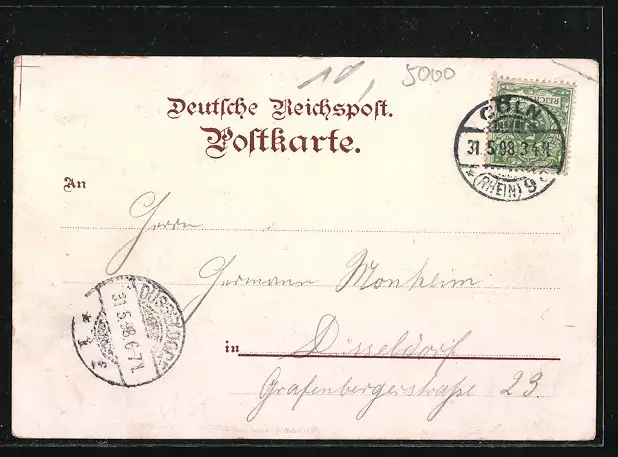 10,
5000
Deutsche Reichspost.
Postkarte.
REICHSPOST
CÖLN
31.5.98 3-4 N.
* (RHEIN) 9
An
Herrn
Hermann Monheim
DÜSSELDORF
31.5.98 6-7 N.
* 1 *
in Düsseldorf
Grafenbergerstraße 23.